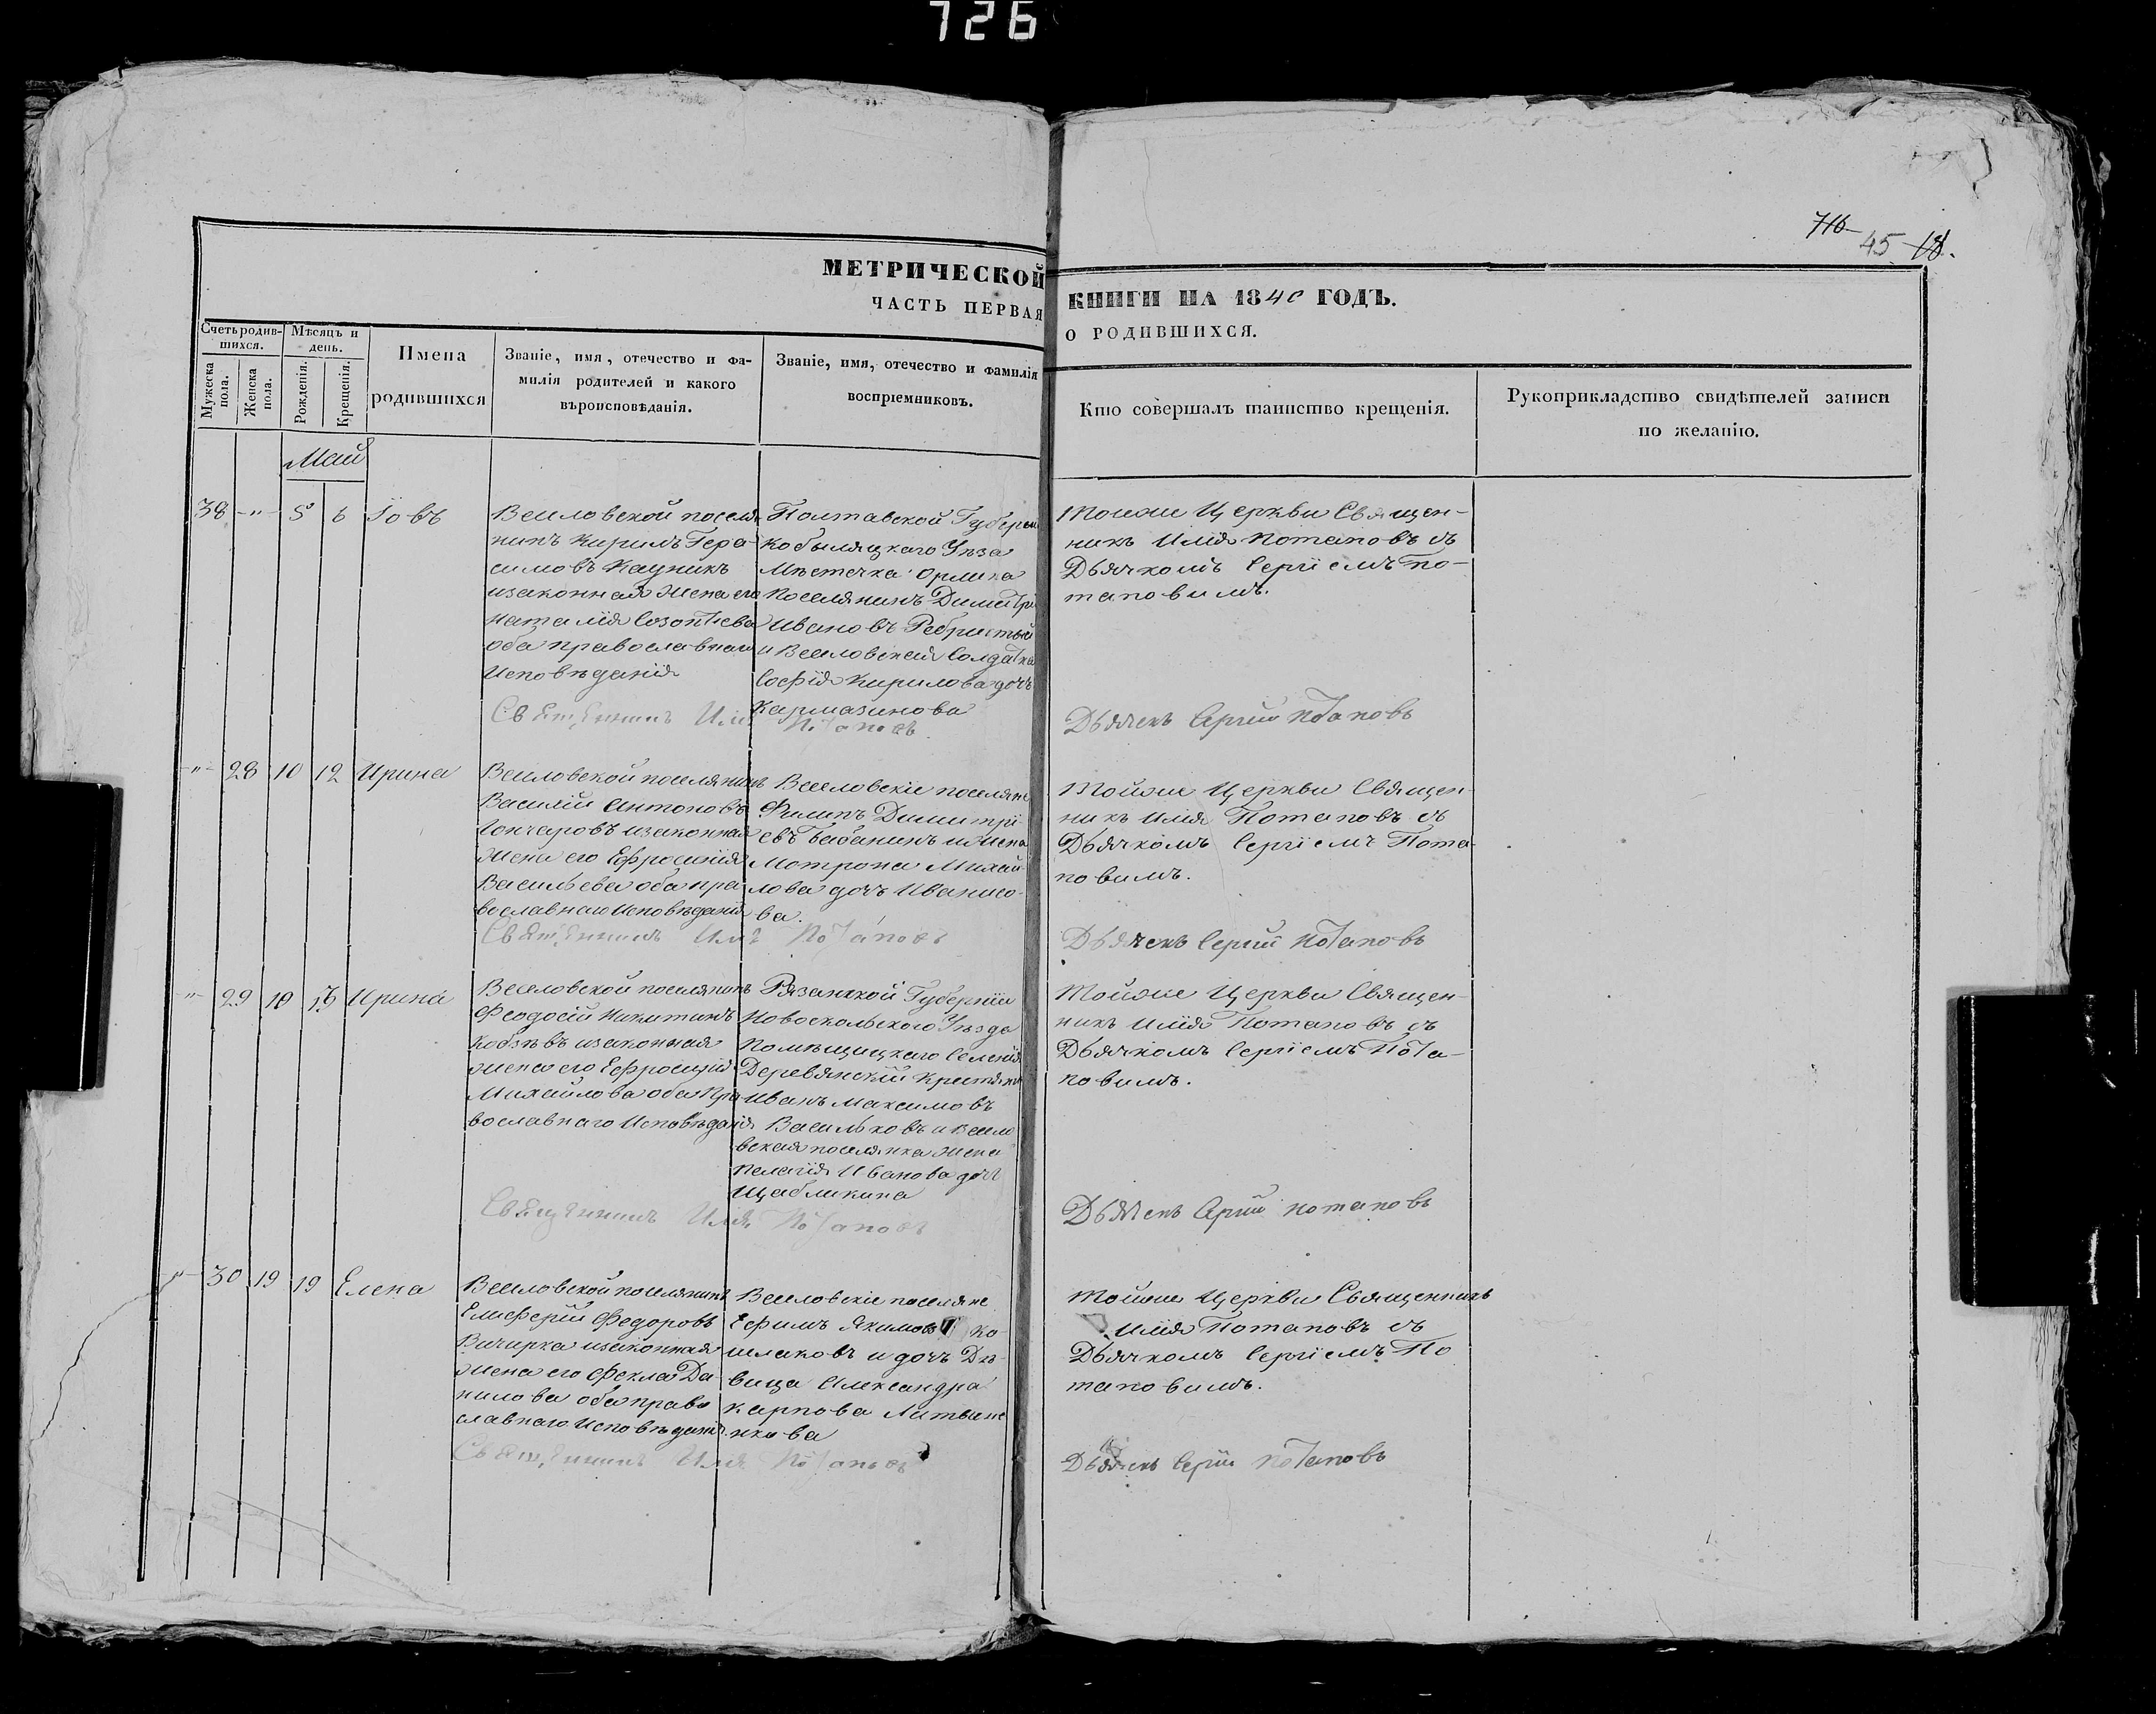 726
716
45 18.
МЕТРИЧЕСКОЙ КНИГИ НА 1840 ГОДЪ.
ЧАСТЬ ПЕРВАЯ О РОДИВШИХСЯ.
Счетъ родив-
шихся.
Мужеска пола.
Женска пола.
Мѣсяцъ и
день.
Рожденія.
Крещенія.
Имена
родившихся
Званіе, имя, отечество и фа-
милія родителей и какого
вѣроисповѣданія.
Званіе, имя, отечество и фамилія
воспріемниковъ.
Кто совершалъ таинство крещенія.
Рукоприкладство свидѣтелей записи
по желанію.
Май
38 -"- 5 6 Іовъ
Веиловской поселя
нинъ Кирилъ Гера-
симовъ Кацникъ
изаконная жена его
Наталія Созонтіева
оба православнаго
Исповѣданія
Полтавской Губерніи
Кобыляцкаго Уѣзда
Мѣстечка Орлика
Поселянинъ Димитрій
Ивановъ Ребристый
и Веиловская Солдатка
Софія Кирилова дочь
Кармазинова
Тойже Церкви Священ-
никъ Илія Потаповъ съ
Дьячкомъ Сергіемъ По-
таповимъ.
Священникъ Илія Потаповъ
Дьячекъ Сергій Потаповъ
-"- 28 10 12 Ирина
Веиловской поселянинъ
Василій Антоновъ
Гончаровъ изаконная
жена его Ефросинія
Васильева оба пра-
вославнаго Исповѣданія
Веселовскіе поселяне
Филипъ Димитрі-
евъ Бабанинъ и жена
Мотрона Михай-
лова дочь Иванио-
ва.
Тойже Церкви Священ-
никъ Илія Потаповъ съ
Дьячкомъ Сергіемъ Пота-
повимъ.
Священникъ Илія Потаповъ
Дьячекъ Сергій Потаповъ
-"- 29 10 15 Ирина
Веселовской поселянинъ
Феодосій Никитинъ
Кобзѣвъ изаконная
жена его Ефросинія
Михайлова оба Пра-
вославнаго Исповѣданія
Рязанской Губерніи
Новоскольского Уѣзда
Помѣщицкаго Селенія
Деревянскій Крестянинъ
Иванъ Максимовъ
Васильковъ и Весело
вская поселянка жена
Пелагія Иванова дочь
Щабликина
Тойже Церкви Священ-
никъ Илія Потаповъ съ
Дьячкомъ Сергіемъ Пота-
повимъ.
Священникъ Илія Потаповъ
Дьячекъ Сергій Потаповъ
-"- 30 19 19 Елена
Веиловской поселянинъ
Елиферій Федоровъ
Вичирка изаконная
жена его Фекла Да-
нилова оба право
славнаго Исповѣданія
Веселовскіе поселяне
Ефимъ Якимовъ Ко-
шлаковъ и дочь Дѣ-
вица Александра
Карпова Литвине
нкова
Тойже Церкви Священникъ
Илія Потаповъ съ
Дьячкомъ Сергіемъ По
таповимъ.
Священникъ Илія Потаповъ
Дьячекъ Сергій Потаповъ